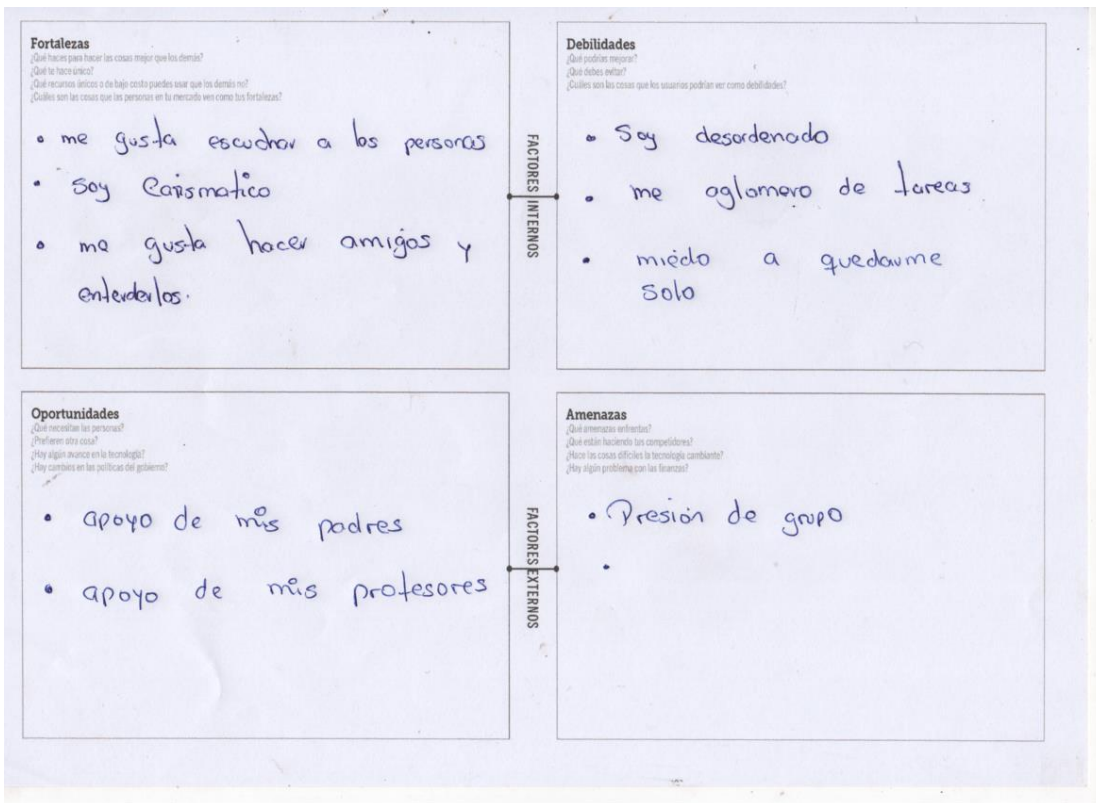 Fortalezas
¿Qué haces para hacer las cosas mejor que los demás?
¿Qué te hace único?
¿Qué recursos únicos o de bajo costo puedes usar que los demás no?
¿Cuáles son las cosas que las personas en tu mercado ven como tus fortalezas?
• me gusta escuchar a las personas
• soy Carismatico
• me gusta hacer amigos y
entenderlos.
FACTORES INTERNOS
Debilidades
¿Qué podrías mejorar?
¿Qué debes evitar?
¿Cuáles son las cosas que los usuarios podrían ver como debilidades?
• Soy desordenado
• me aglomero de tareas
• miedo a quedarme
solo
Oportunidades
¿Qué necesitan las personas?
¿Prefieren otra cosa?
¿Hay algún avance en la tecnología?
¿Hay cambios en las políticas del gobierno?
• apoyo de mis padres
• apoyo de mis profesores
FACTORES EXTERNOS
Amenazas
¿Qué amenazas enfrentas?
¿Qué están haciendo tus competidores?
¿Hace las cosas difíciles la tecnología cambiante?
¿Hay algún problema con las finanzas?
• Presión de grupo
•